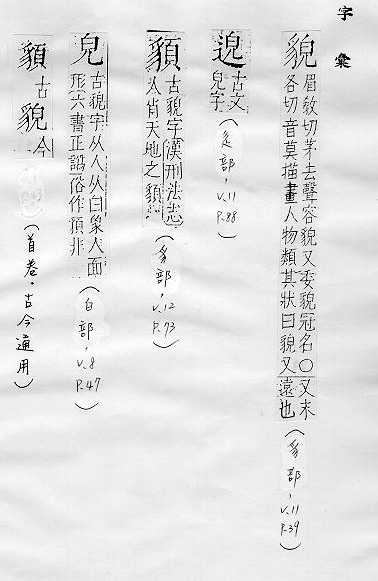 字彙
貌
眉敎切茅去聲容貌又委貌冠名○又末
各切音莫描畫人物類其狀曰貌又遠也
(豸部,V.11 P.39)
古文
皃字
(辵部,V.11 P.88)
古貌字漢刑法志
肖天地之
(豸部,V.12 P.73)
皃
古貌字从人从白象人面
形六書正譌俗作非
(白部,V.8 P.47)
古貌今
(首卷,古今通用)